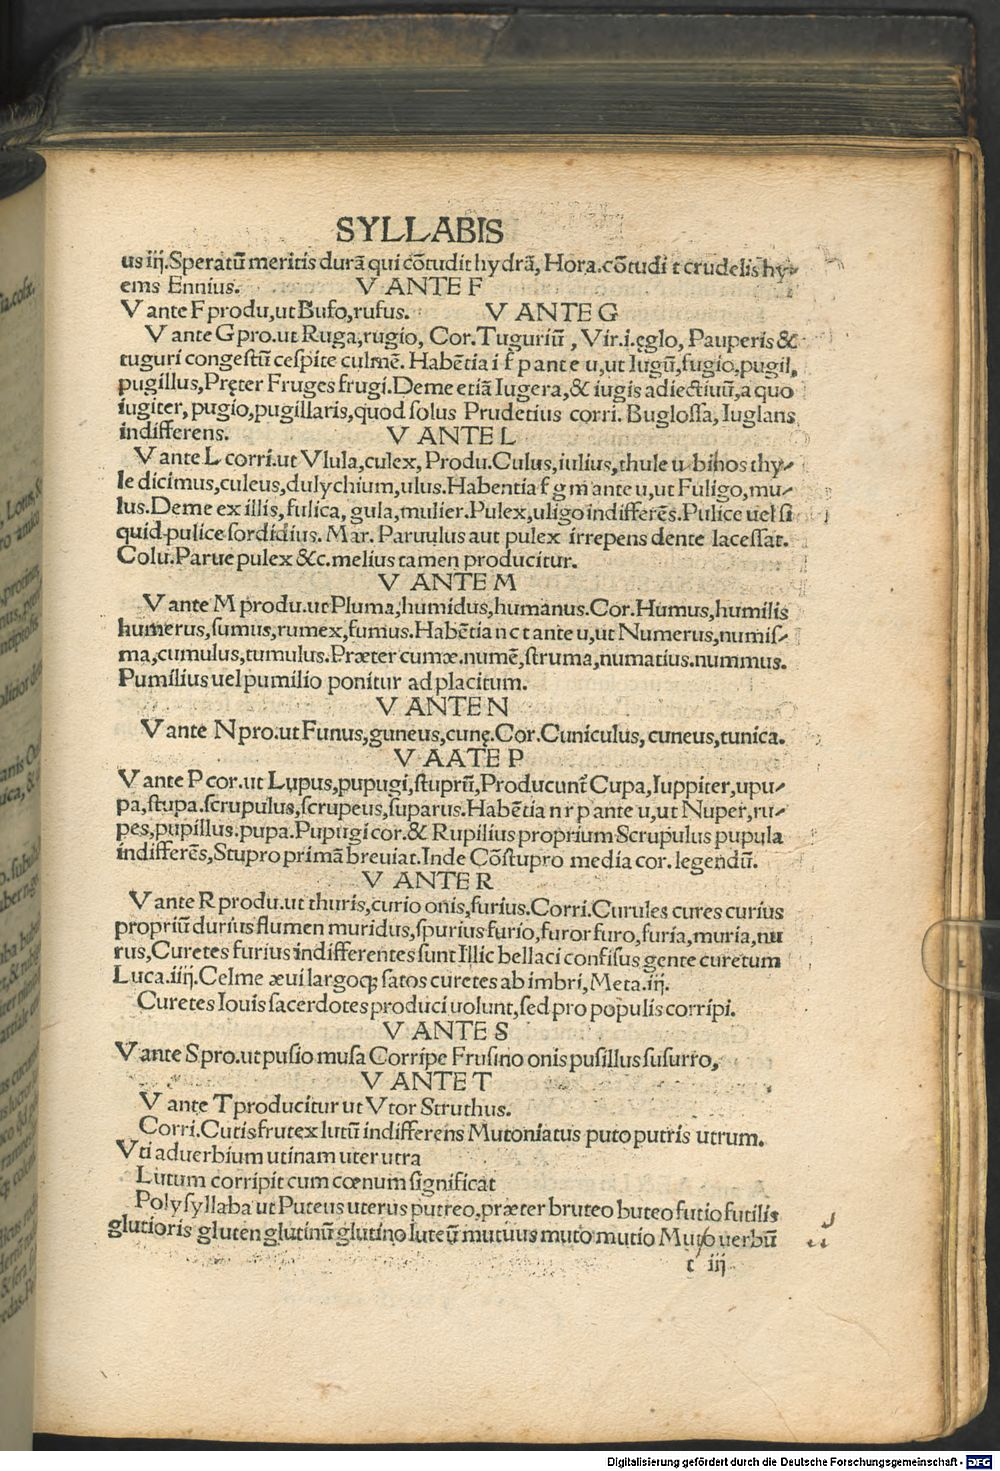 SYLLABIS
us iij.Speratū meritis durā qui cōtudit hydrā, Hora.cōtudit crudelis hy⸗
ems Ennius. V ANTE F
V ante F produ,ut Bufo,rufus. V ANTE G
V ante G pro.ut Ruga,rugio, Cor.Tuguriū, Vir.i.ęglo, Pauperis &
tuguri congestū cespite culmē. Habētia i f p ante u,ut Iugū,fugio,pugil,
pugillus,Pręter Fruges frugi.Deme etiā Iugera,& iugis adiectiuū,a quo
iugiter, pugio,pugillaris,quod solus Prudētius corri. Buglossa, Iuglans
indifferens. V ANTE L
V ante L corri.ut Vlula,culex, Produ.Culus,iulius,thule u bihos thy⸗
le dicimus,culeus,dulychium,ulus.Habentia f g m ante u,ut Fuligo,mu⸗
lus.Deme ex illis,fulica, gula,mulier.Pulex,uligo indifferēs.Pulice uel si
quid pulice sordidius. Mar. Paruulus aut pulex irrepens dente lacessat.
Colu.Parue pulex &c.melius tamen producitur.
V ANTE M
V ante M produ.ut Pluma,humidus,humanus.Cor.Humus,humilis
humerus,sumus,rumex,fumus.Habētia n c t ante u,ut Numerus,numis⸗
ma,cumulus,tumulus.Præter cumæ.numē,struma,numatius.nummus.
Pumilius uel pumilio ponitur ad placitum.
V ANTE N
V ante N pro.ut Funus,guneus,cunę.Cor.Cuniculus, cuneus,tunica.
V AATE P
V ante P cor.ut Lupus,pupugi,stuprū,Producunt̄ Cupa,Iuppiter,upu⸗
pa,stupa.scrupulus,scrupeus,suparus.Habētia n r p ante u,ut Nuper,ru⸗
pes,pupillus.pupa.Pupugi cor.& Rupilius proprium Scrupulus pupula
indifferēs,Stupro primā breuiat.Inde Cōstupro media cor. legendū.
V ANTE R
V ante R produ.ut thuris,curio onis,furius.Corri.Curules cures curius
propriū durius flumen muridus,spurius furio,furor furo,furia,muria,nu
rus,Curetes furius indifferentes sunt Illic bellaci confisus gente curetum
Luca.iiij.Celme æui largoq; satos curetes ab imbri,Meta.iij.
Curetes Iouis sacerdotes produci uolunt,sed pro populis corripi.
V ANTE S
V ante S pro.ut pusio musa Corripe Frusino onis pusillus susurro,
V ANTE T
V ante T producitur ut Vtor Struthus.
Corri.Cutis frutex lutū indifferens Mutoniatus puto putris utrum.
Vti aduerbium utinam uter utra
Lutum corripit cum cœnum significat
Polysyllaba ut Puteus uterus putreo,præter bruteo buteo futio futilis
glutioris gluten glutinū glutino luteū mutuus muto mutio Muto uerbū
t iij
Digitalisierung gefördert durch die Deutsche Forschungsgemeinschaft - DFG